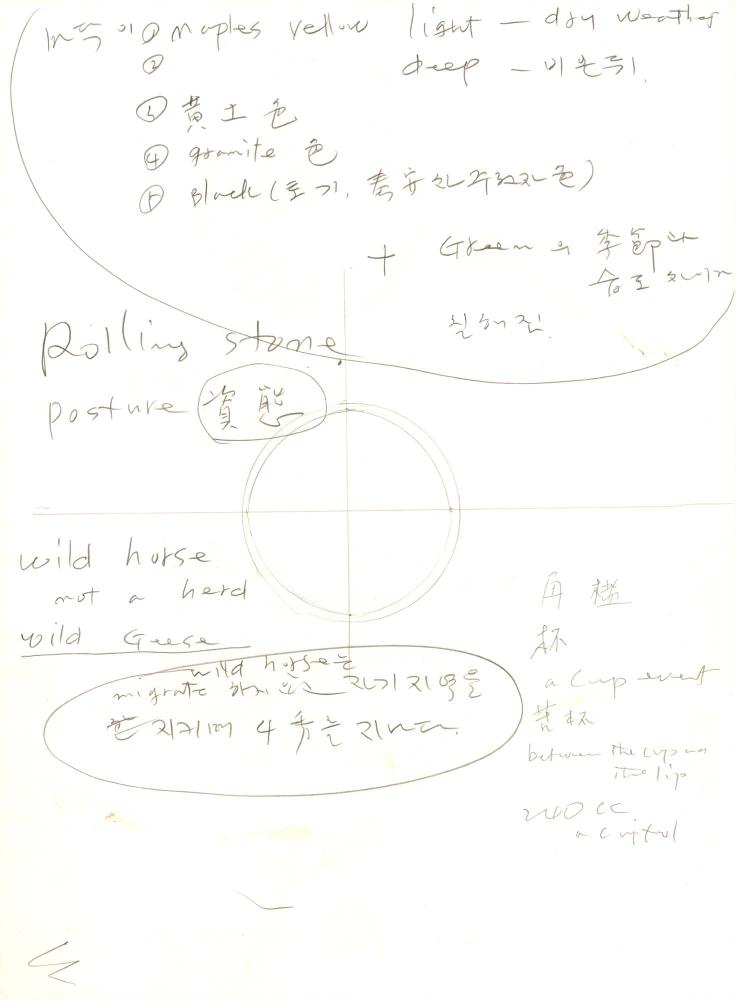 ① maples yellow light — dry weather
② deep — 비온뒤.
③ 黃土色
④ granite 色
⑤ Black (토기, 色)
+ Green 의 季節과
Rolling stone.
posture 資態
wild horse
not a herd
wild Geese
wild horse는
migrate 하지 않고 자기 지역을
지키며 4季를 지난다.
再
杯
a cup event
苦杯
between the cup and
the lip
240 cc.
a cupful